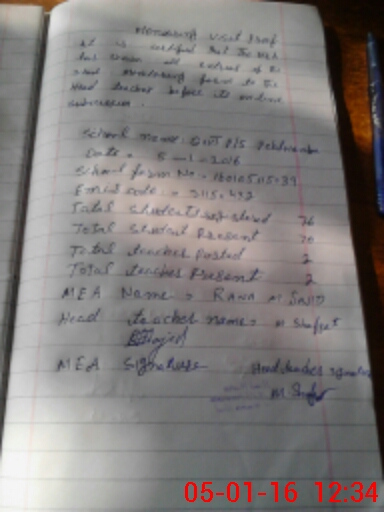 Monitoring visit Proof
it is certified that the MEA
has shown all entries of the
school monitoring form to the
Head teacher before its online
submission.
School name: Govt P/S
Date = 5-1-2016
School form No:-
EMIS code :-
Total students registered 76
Total Student Present 70
Total teacher posted 2
Total teacher Present 2
MEA Name = RANA M SAJID
Head teacher name = M Shafqat
MEA Signature Head teacher signature
M. Shafqat
05-01-16 12:34